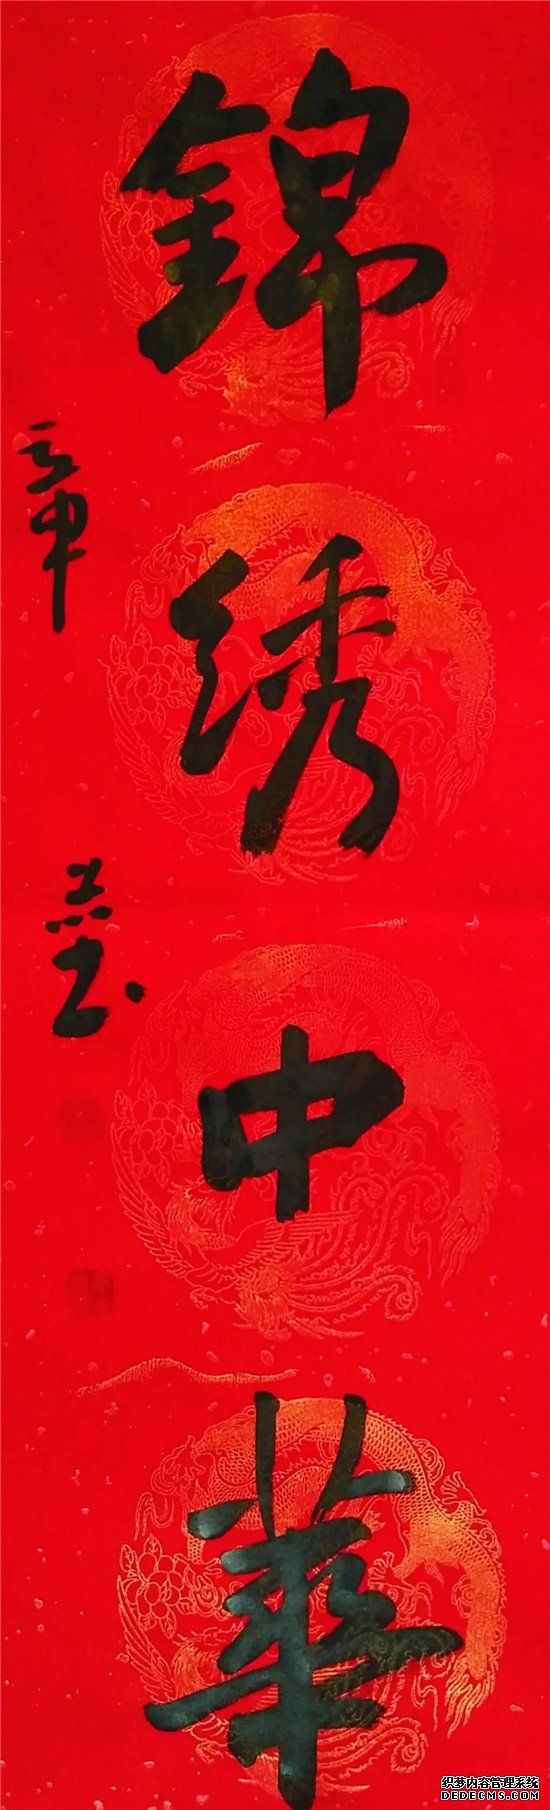 錦
绣
中
華
章
织梦内容管理系统
DEDECMS.COM